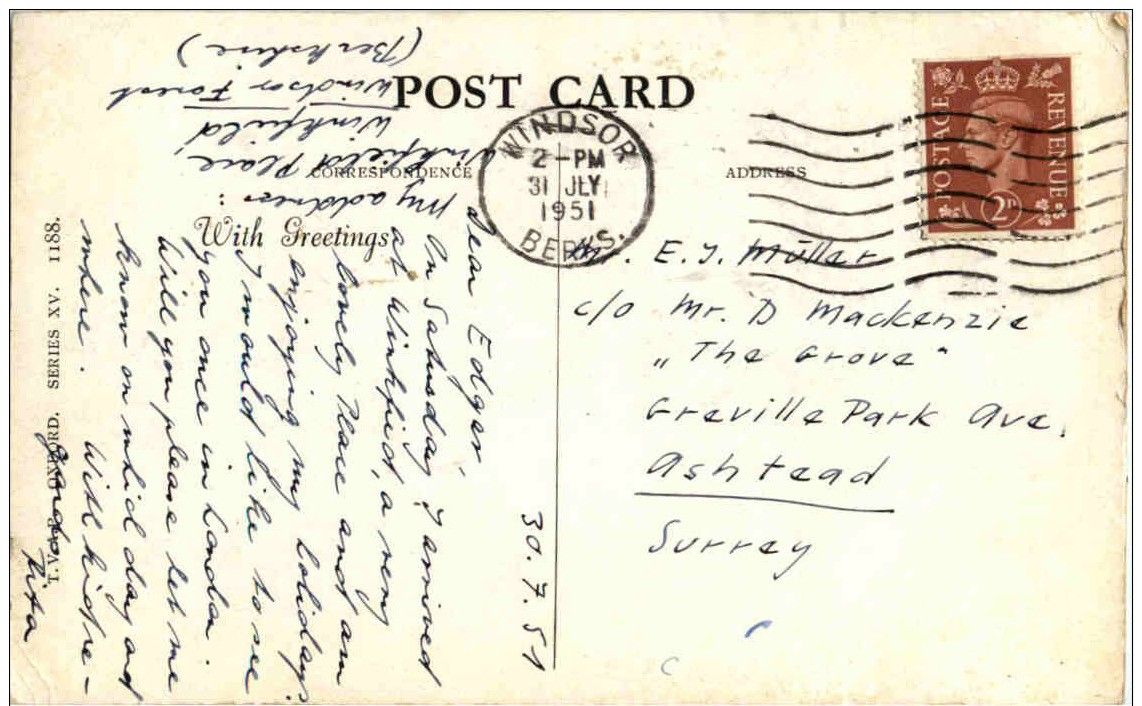 POST CARD
CORRESPONDENCE
ADDRESS
With Greetings
T.V.A.P. OXFORD. SERIES XV. 1188.
WINDSOR
2 - PM
31 JLY
1951
BERKS.
POSTAGE
REVENUE
2D
Mr. E. J. Müller
c/o Mr. D Mackenzie
„The Grove"
Greville Park Ave.
Ashtead
Surrey
30.7.51
Dear Edger,
On Satusday I arrived
at Winkfield, a very
lovely Place and am
enjoying my holidays.
I would like to see
you once in London.
Will you please let me
know on which day and
where. With kidre-
gards
Rita
My address:
Winkfield Place,
Winkfield
Windsor Forest
(Berkshire)